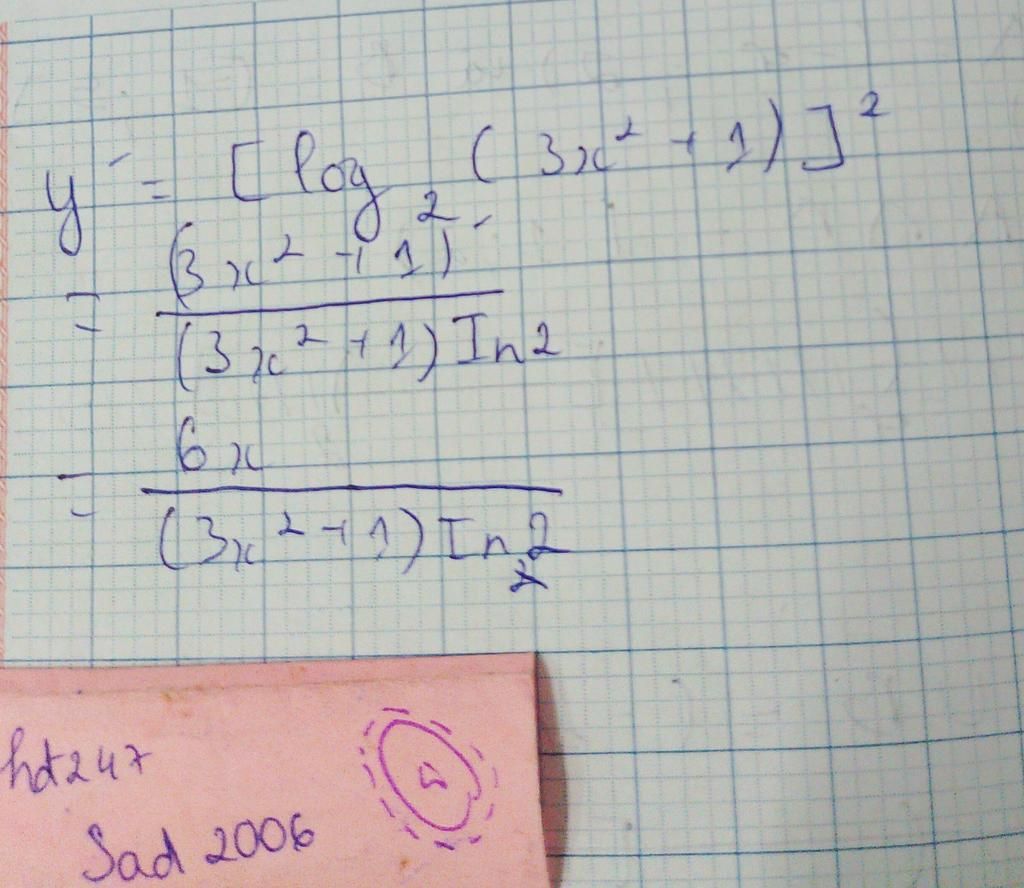 y' = [log₂ (3x² + 1)]²
= (3x² + 1)'
(3x² + 1) In 2
= 6x
(3x² + 1) In 2
hd247
Sad 2006